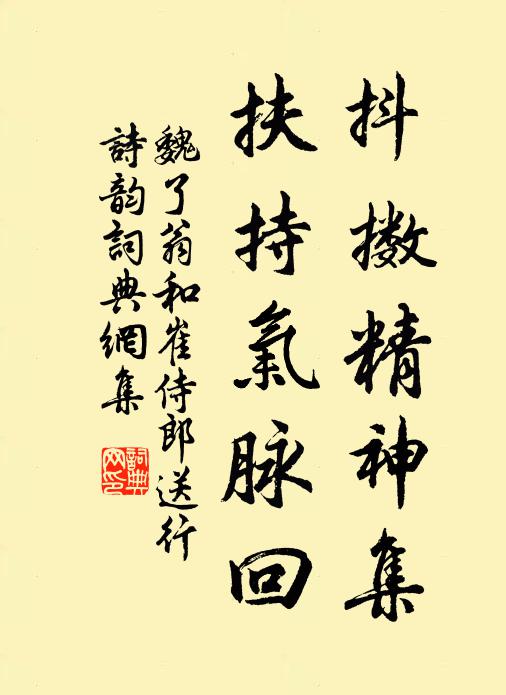 抖擻精神集
扶持氣脉回
魏了翁和崔侍郎送行
詩韵詞典網集
詞典
网印